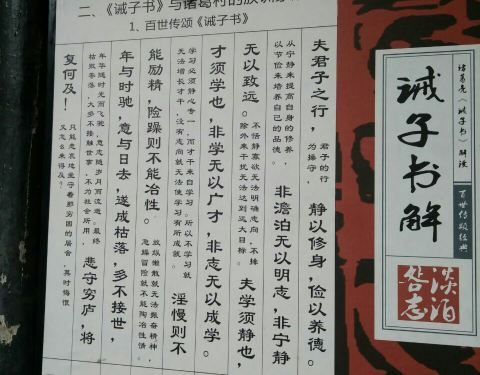 二、《诫子书》与诸葛村的族训家
1、百世传颂《诫子书》
诸葛亮《诫子书》解读
诫子书解
百世传颂经典
淡泊
志
夫君子之行，
君子的行
为操守，
静以修身，俭以养德。
从宁静来提高自身的修养，
以节俭来培养自己的品德。
非澹泊无以明志，非宁静
无以致远。
不恬静寡欲无法明确志向，不排
除外来干扰无法达到远大目标。
夫学须静也，
才须学也，非学无以广才，非志无以成学。
学习必须静心专一，而才干来自学习。所以不学习就
无法增长才干，没有志向就无法使学习有所成就。
淫慢则不
能励精，险躁则不能冶性。
放纵懒散就无法振奋精神，
急躁冒险就不能陶冶性情。
年与时驰，意与日去，遂成枯落，多不接世，
年华随时光而飞驰，意志随岁月而流逝。最终
枯败零落，大多不接触世事，不为社会所用，
悲守穷庐，将
复何及！
只能悲哀地坐守着那穷困的居舍，其时悔恨
又怎么来得及？